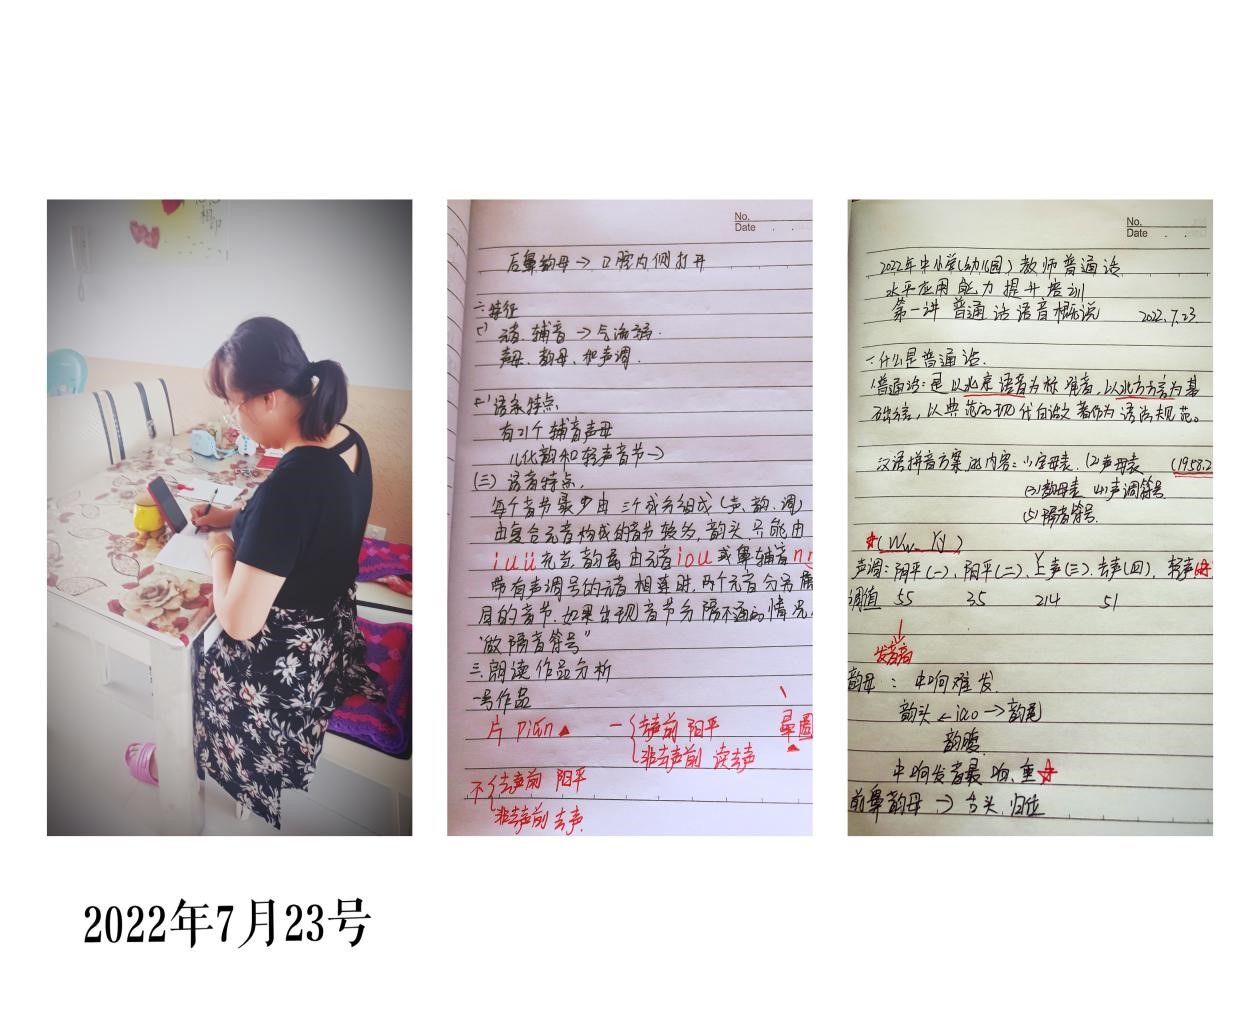 No.
Date
后鼻韵母→口腔内侧打开
二.特征
元音、辅音→气流
声母、韵母、和声调.
语系特点
有21个辅音声母
儿化韵和轻声音节→
(三)语音特点.
每个音节最少由三个成分组成(声、韵、调)
由复合元音构成的音节较多,韵头只能由
i u ü 充当,韵尾由元音 i o u 或鼻辅音 n
带有声调号的元音相连时,两个元音分另属
同的音节.如果出现音节分隔不通的情况
"做隔音符号"
三.朗读作品分析
一号作品
片 piàn▲ 一{去声前 阳平
非去声前 读去声
晕圈
不{去声前 阳平
非去声前 去声.
No.
Date
2022年中小学(幼儿园)教师普通话
水平应用能力提升培训
第一讲 普通话语音概说 2022.7.23.
一.什么是普通话.
1普通话:是以北京语音为标准音,以北方方言为基
础方言,以典范的现代白话文著作为语法规范。
汉语拼音方案的内容:(1)字母表.(2)声母表 (1958.2
(3)韵母表 (4)声调符号
(5)隔音符号.
★(Ww Yy)
声调:阴平(一)、阳平(二)、上声(三).去声(四),轻声
调值 55 35 214 51
↓
发音高
韵母:中响难发.
韵头←iao→韵尾
韵腹.
中响发音最响、重☆
前鼻韵母→舌头.归位
2022年7月23号